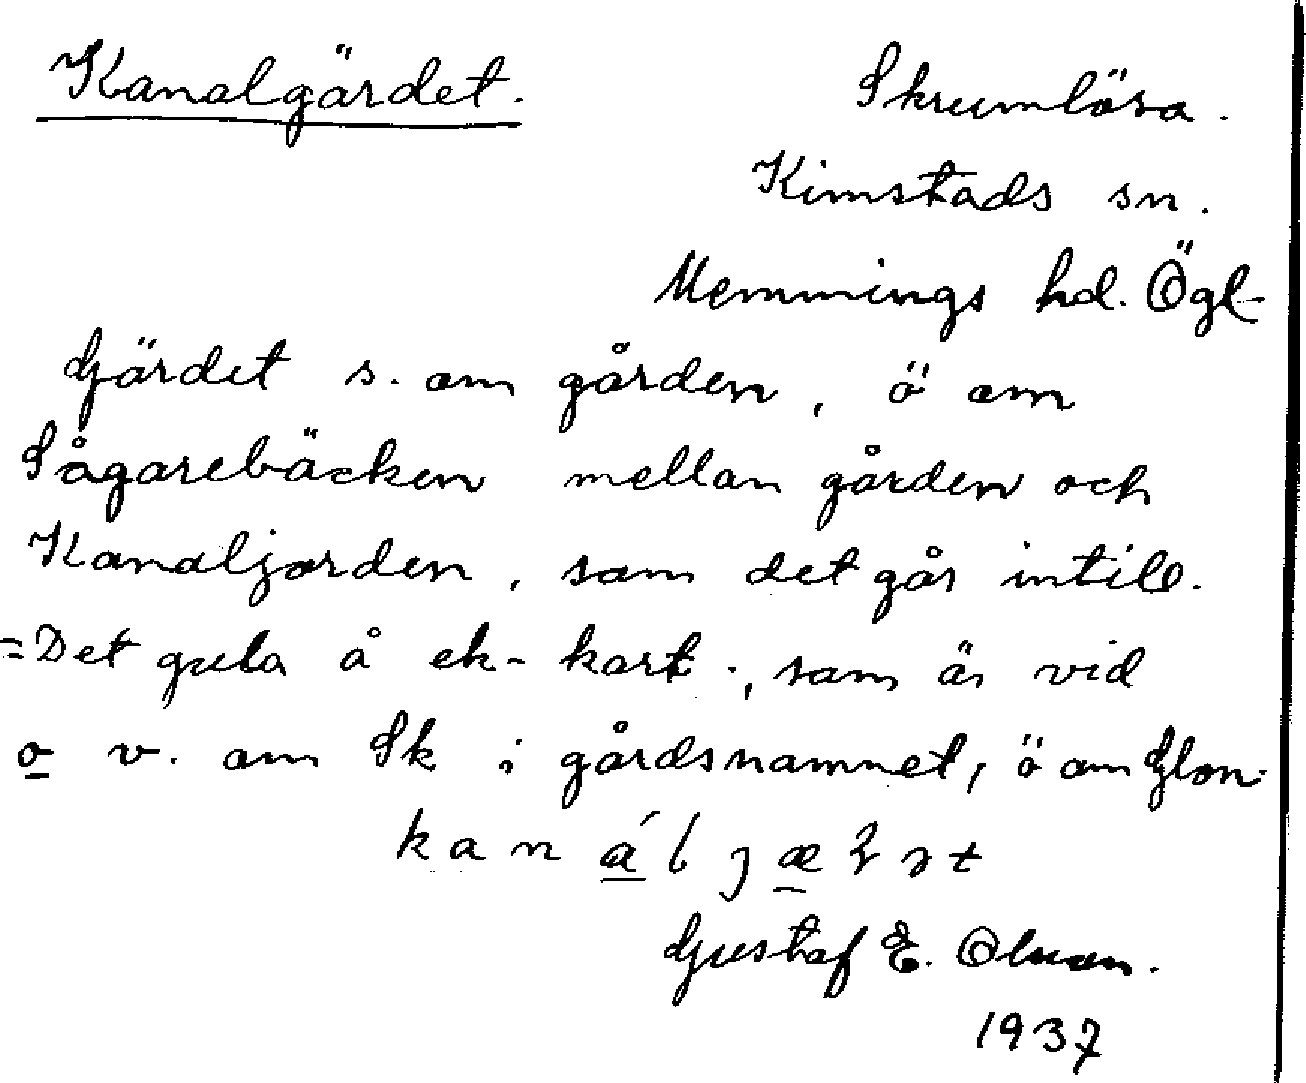 Kanalgärdet.
Skrumlösa.
Kimstads sn.
Memmings hd. Ögl-
Gärdet s. om gården, ö om
Sågarebäcken mellan gården och
Kanaljorden, som det går intill.
=Det gula å ek-kart., som är vid
o v. om Sk i gårdsnamnet, ö om Glon.
Gustaf E. Olson.
1937